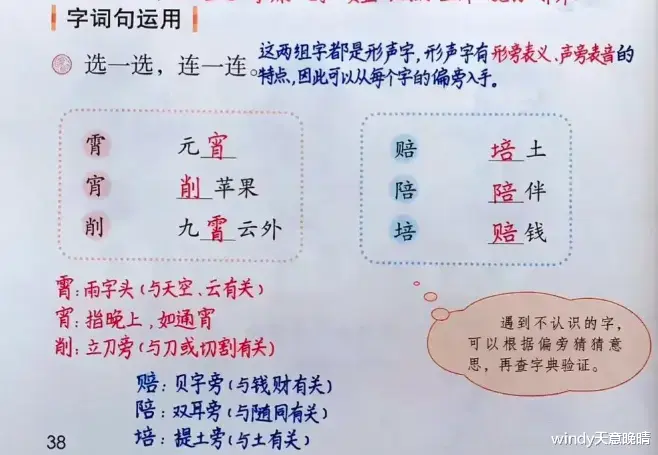 字词句运用
选一选，连一连。
这两组字都是形声字，形声字有形旁表义、声旁表音的
特点，因此可以从每个字的偏旁入手。
霄 元宵
宵 削苹果
削 九霄云外
赔 培土
陪 陪伴
培 赔钱
霄：雨字头（与天空、云有关）
宵：指晚上，如通宵
削：立刀旁（与刀或切割有关）
遇到不认识的字，
可以根据偏旁猜猜意
思，再查字典验证。
赔：贝字旁（与钱财有关）
陪：双耳旁（与随同有关）
培：提土旁（与土有关）
38
windy天意晚晴